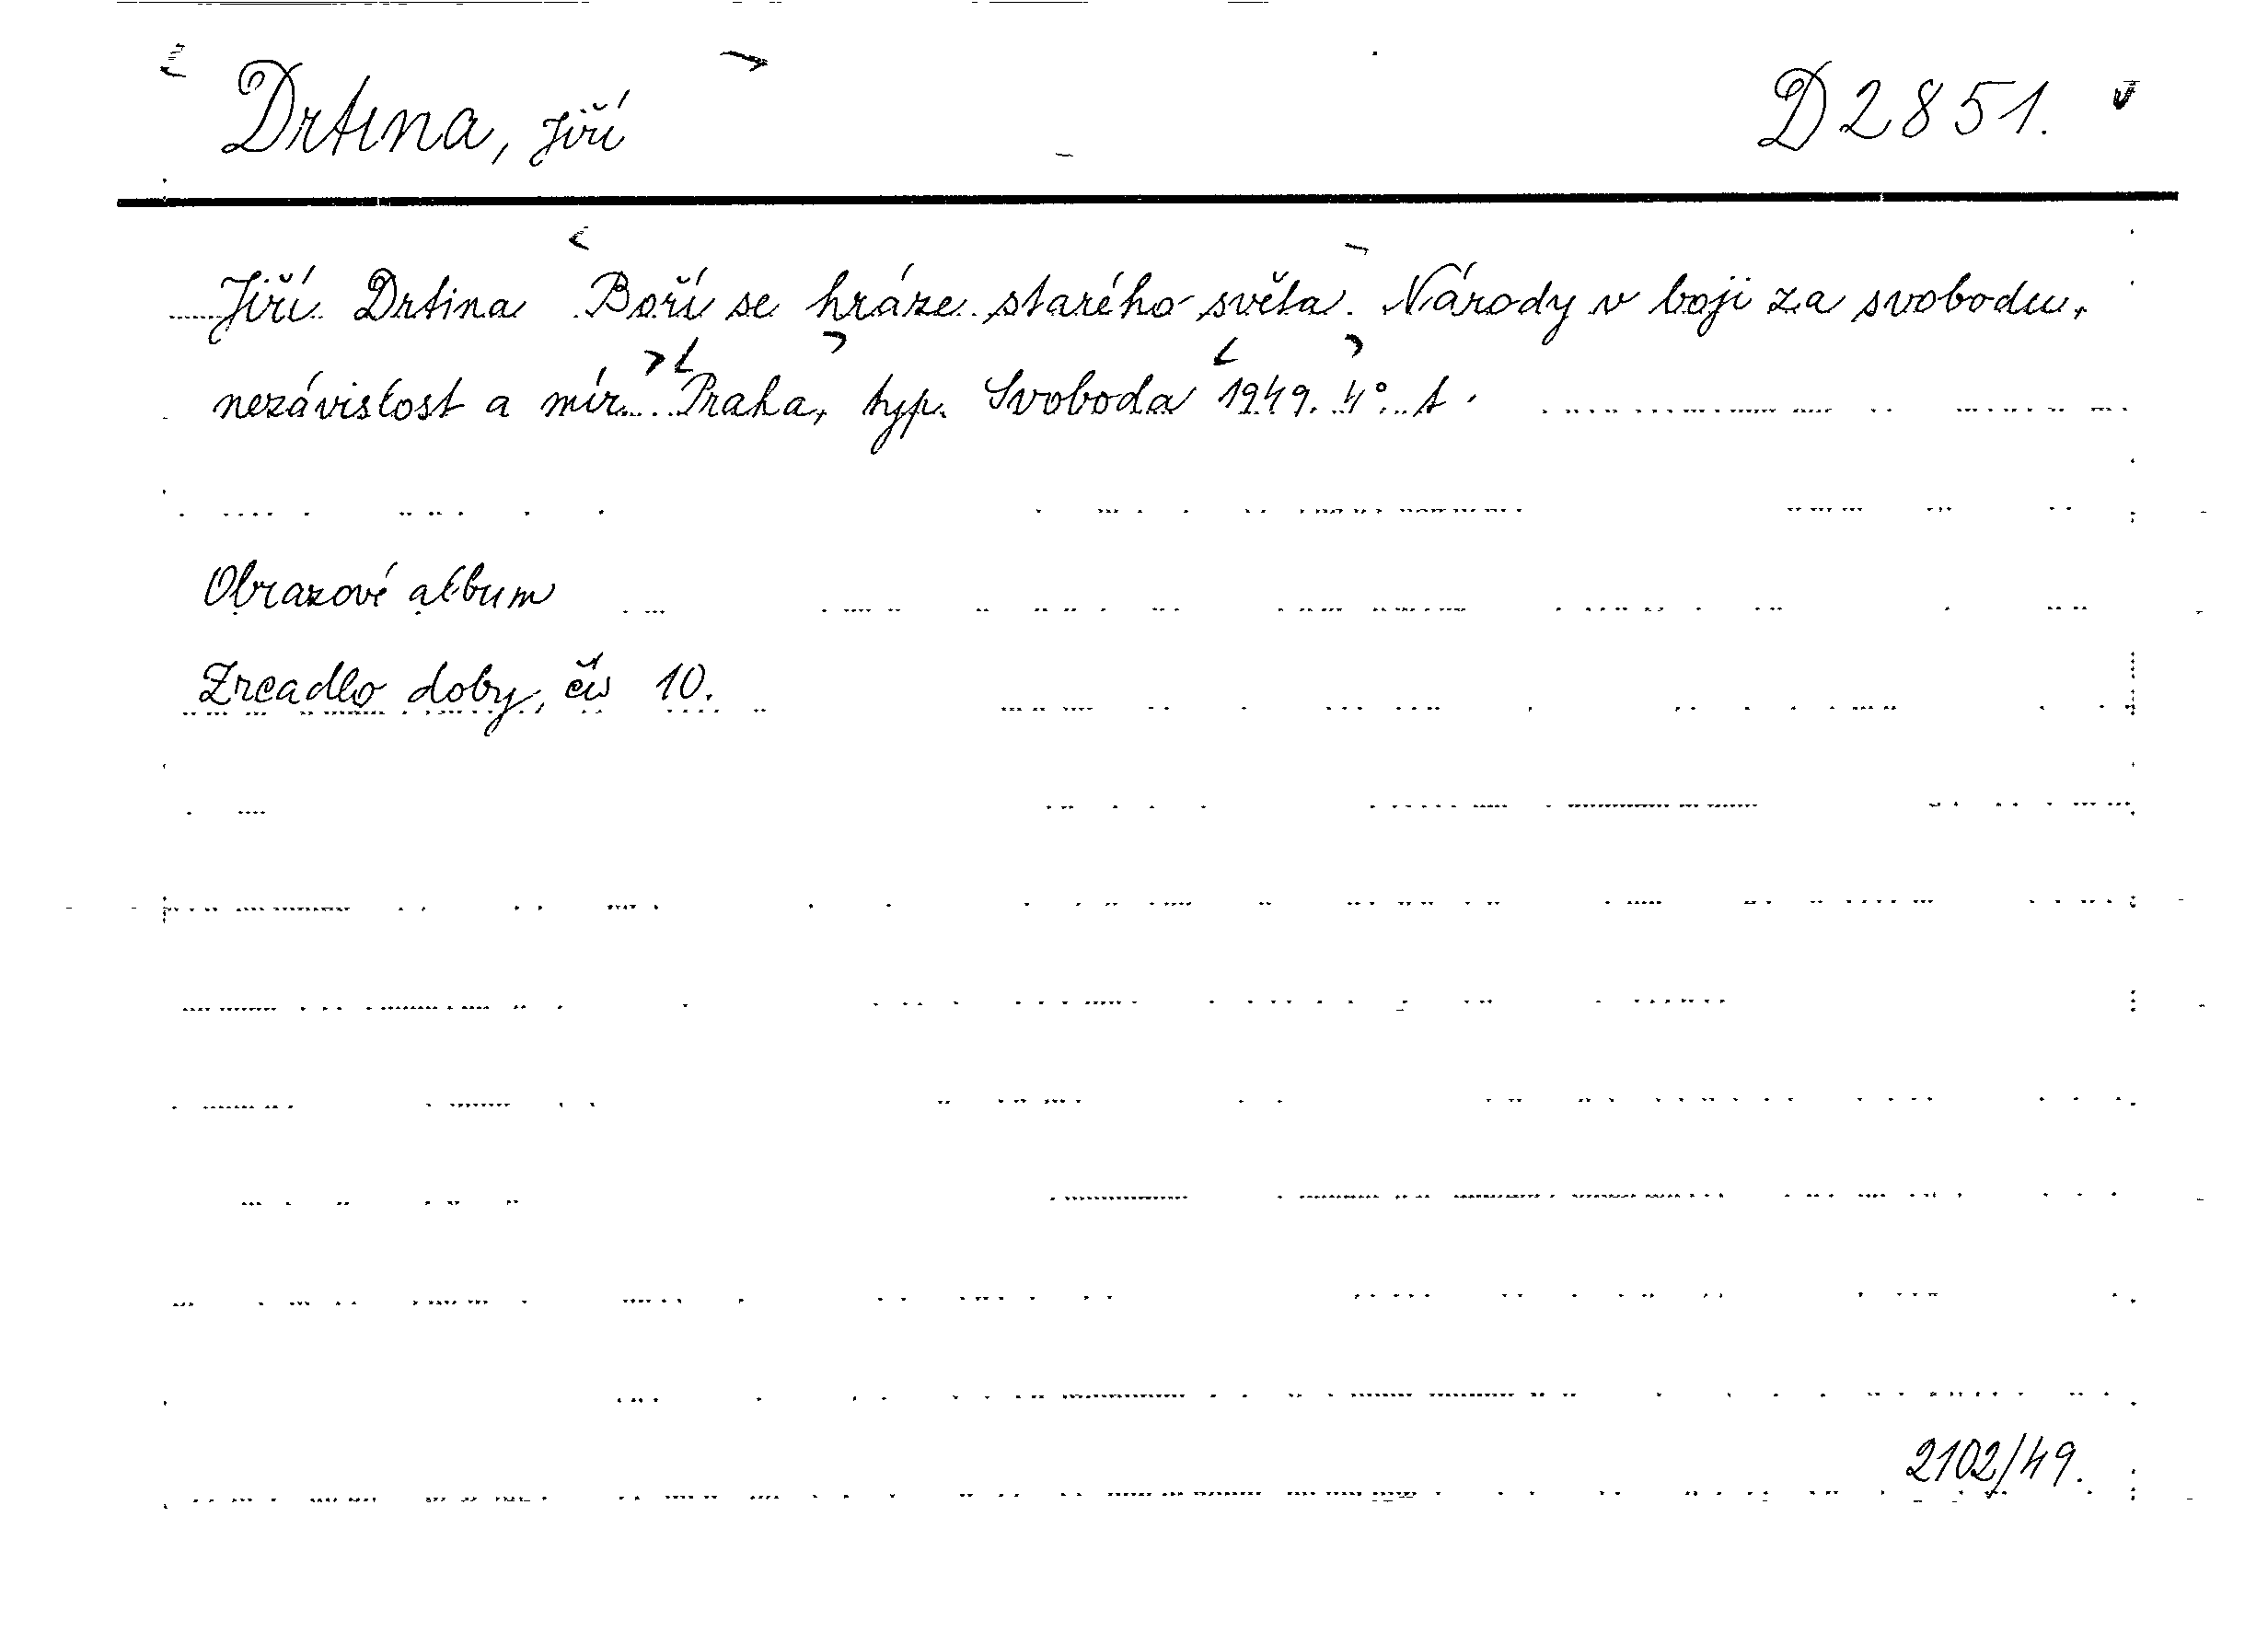 Drtina, Jiří D 2851.
Jiří Drtina Boří se hráze starého světa. Národy v boji za svobodu,
nezávislost a mír. Praha, typ. Svoboda 1949. 4°. t.
Obrazové album
Zrcadlo doby, čís 10.
2102/49.